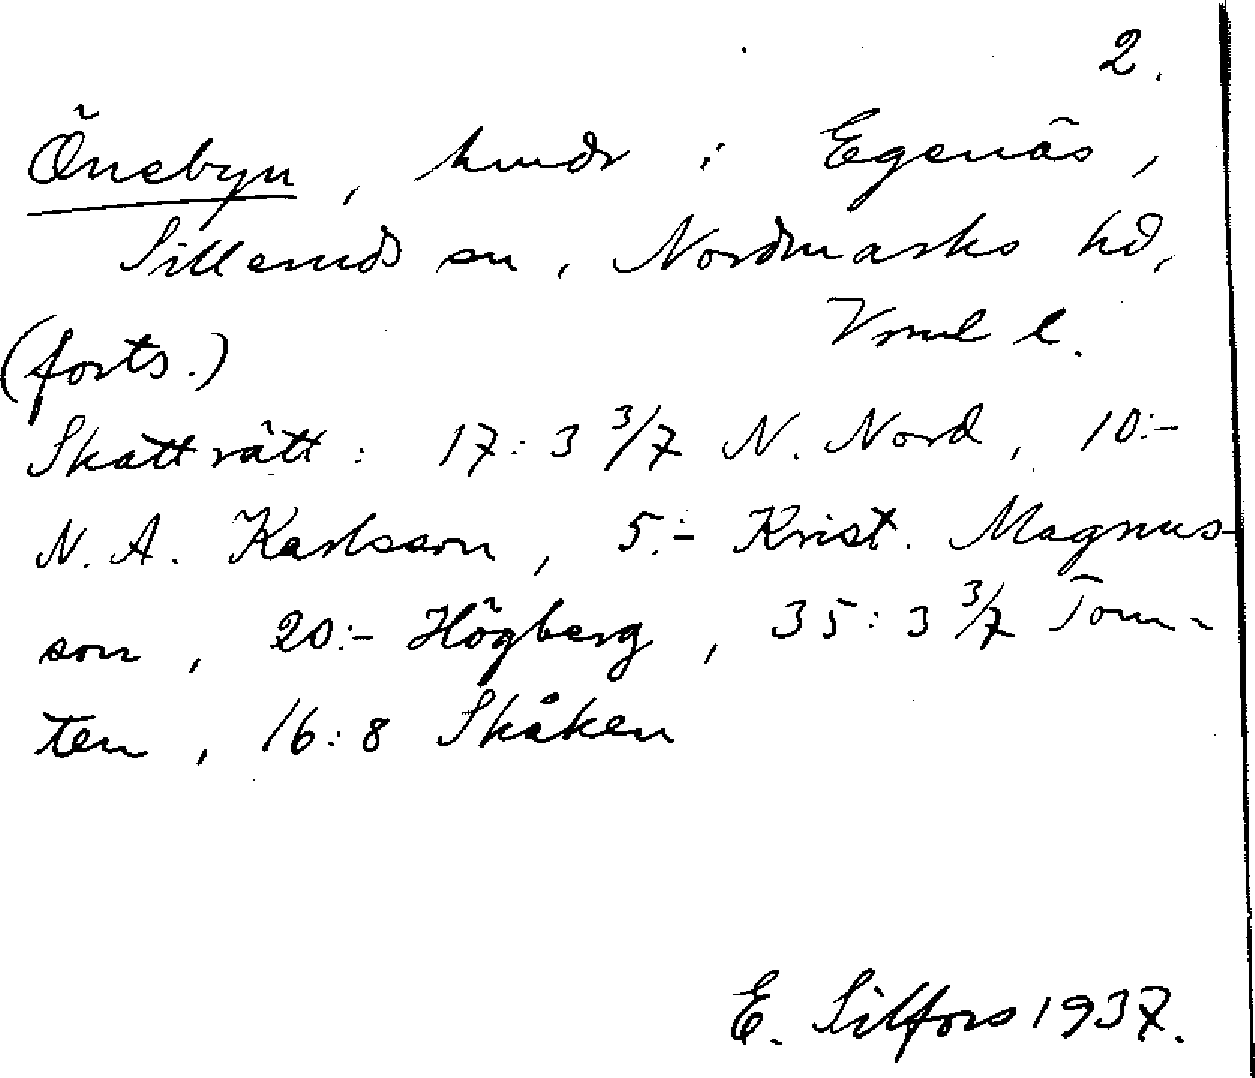 2.
Önebyn, hmdr i Egenäs,
Silleruds sn, Nordmarks hd,
Vrml l.
(forts.)
Skatträtt: 17:3 3/7 N. Nord, 10:-
N. A. Karlsson, 5:- Krist. Magnus-
son, 20:- Högberg, 35:3 3/7 Tom-
ten, 16:8 Skåken
E. Silfors 1937.